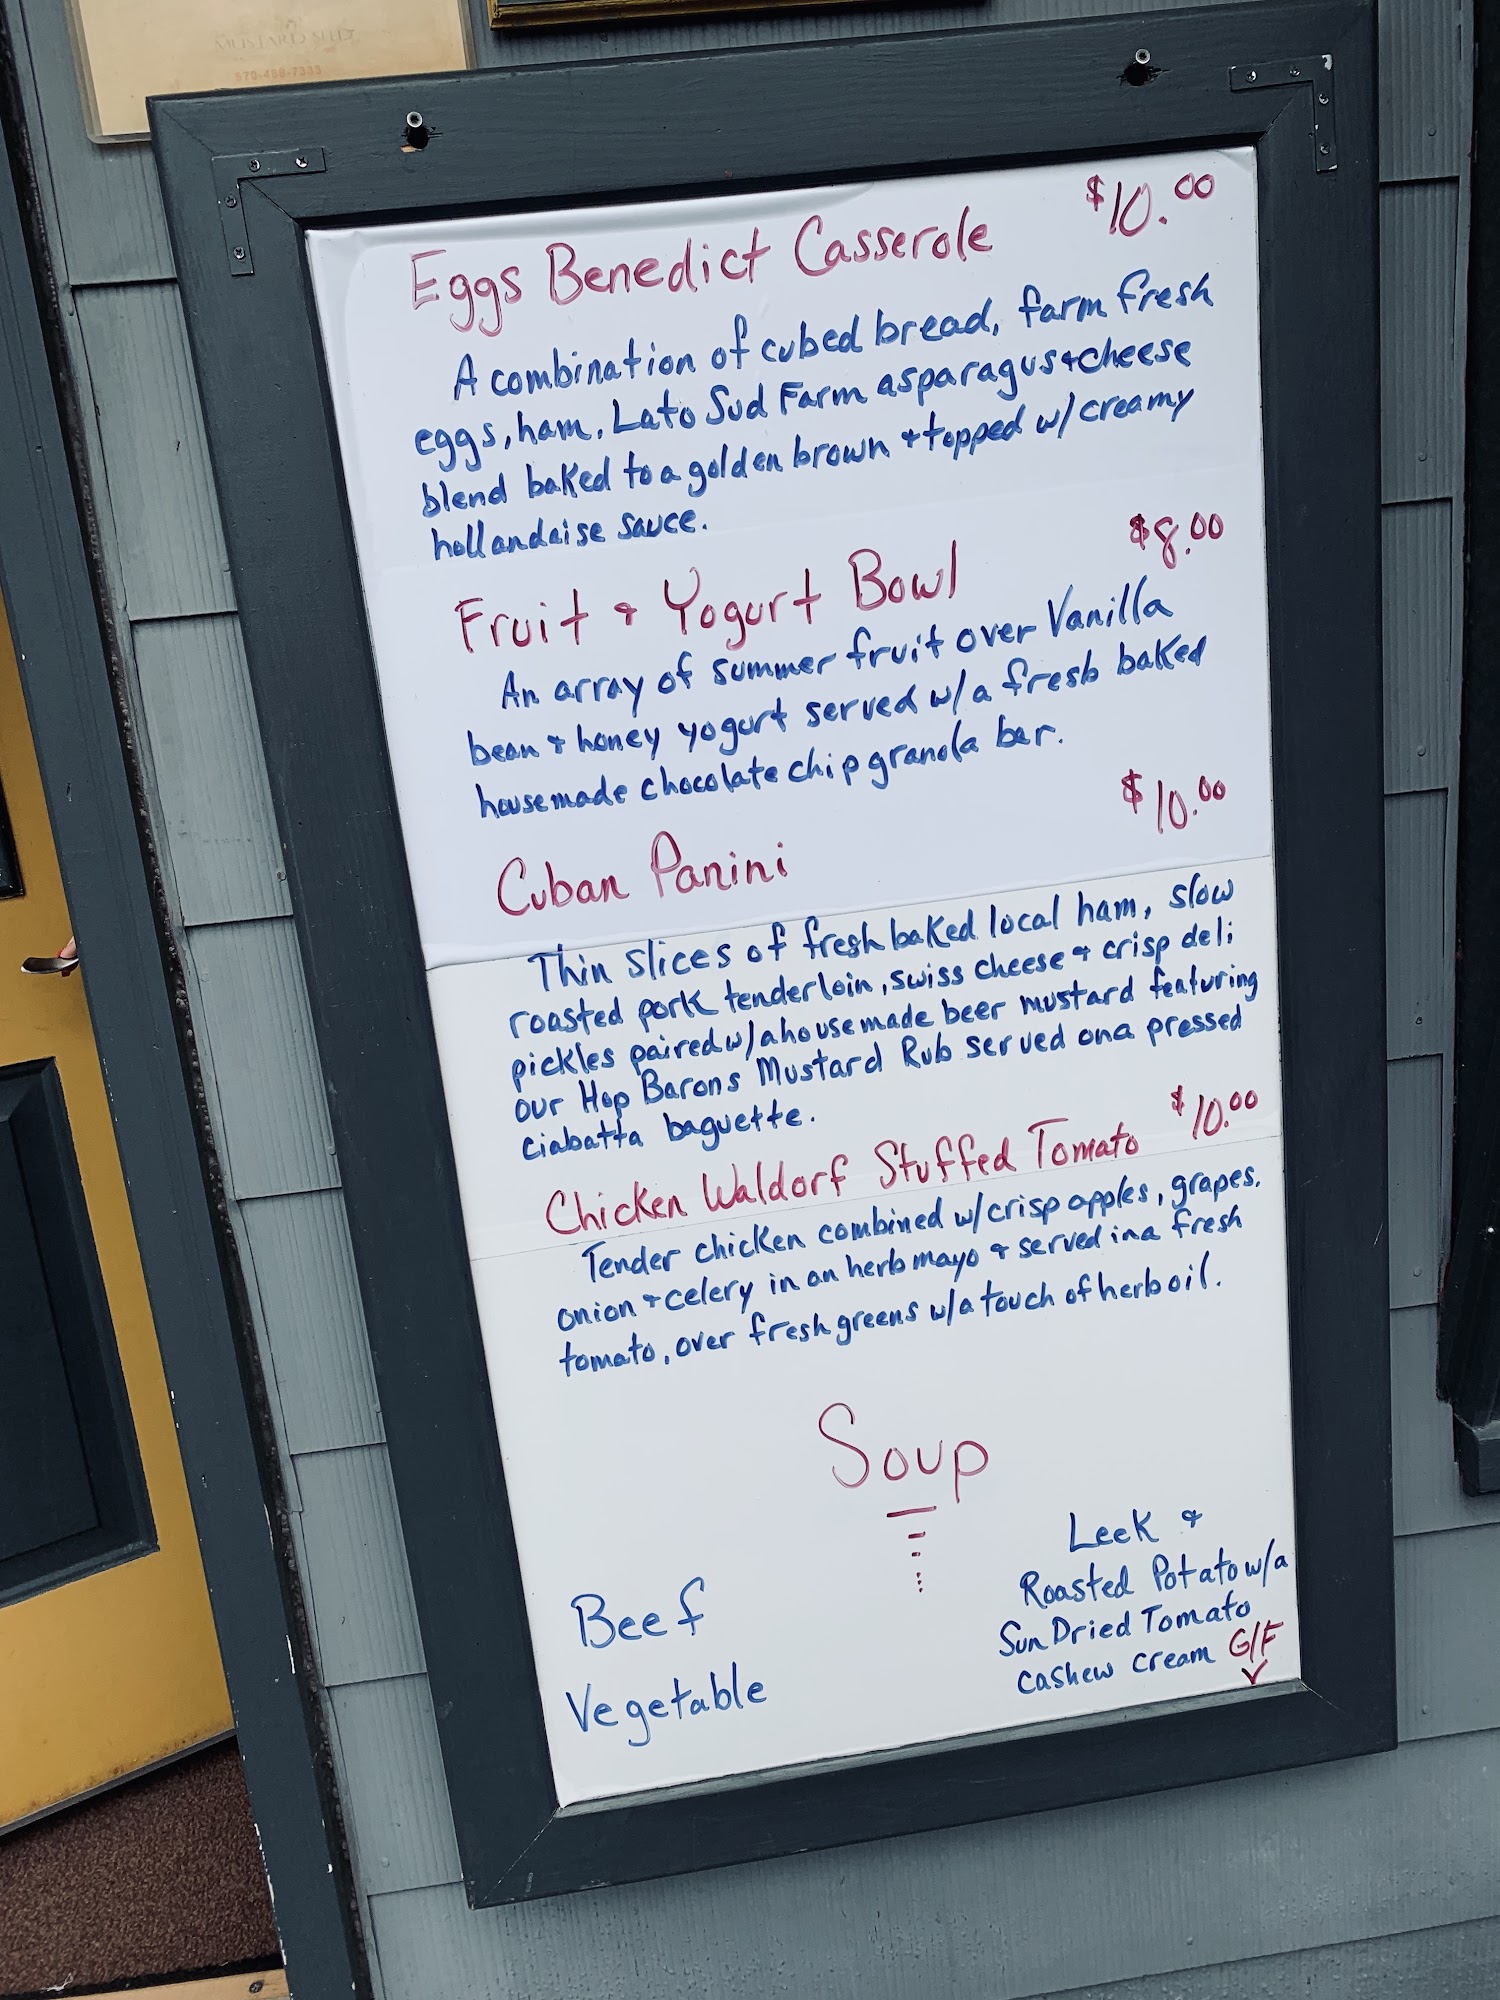 MUSTARD SEED
570-488-7335
Eggs Benedict Casserole $10.00
A combination of cubed bread, farm fresh
eggs, ham, Lato Sud Farm asparagus & cheese
blend baked to a golden brown & topped w/ creamy
hollandaise sauce.
Fruit & Yogurt Bowl $8.00
An array of summer fruit over Vanilla
bean & honey yogurt served w/ a fresh baked
housemade chocolate chip granola bar.
Cuban Panini $10.00
Thin slices of fresh baked local ham, slow
roasted pork tenderloin, swiss cheese & crisp deli
pickles paired w/ a housemade beer mustard featuring
our Hop Barons Mustard Rub served on a pressed
ciabatta baguette.
Chicken Waldorf Stuffed Tomato $10.00
Tender chicken combined w/ crisp apples, grapes,
onion & celery in an herb mayo & served in a fresh
tomato, over fresh greens w/ a touch of herb oil.
Soup
Beef
Vegetable
Leek &
Roasted Potato w/ a
Sun Dried Tomato
cashew cream G/F
V